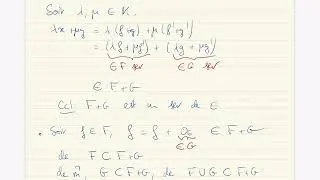 Soit λ, μ ∈ K.
λx + μy = λ(f+g) + μ(f'+g')
= (λf + μf') + (λg + μg')
∈ F sev ∈ G sev
∈ F+G
Ccl: F+G est un sev de E
• Soit f ∈ F, f = f + 0E ∈ F+G
∈ G
dc F ⊂ F+G
de m̂, G ⊂ F+G, dc F ∪ G ⊂ F+G